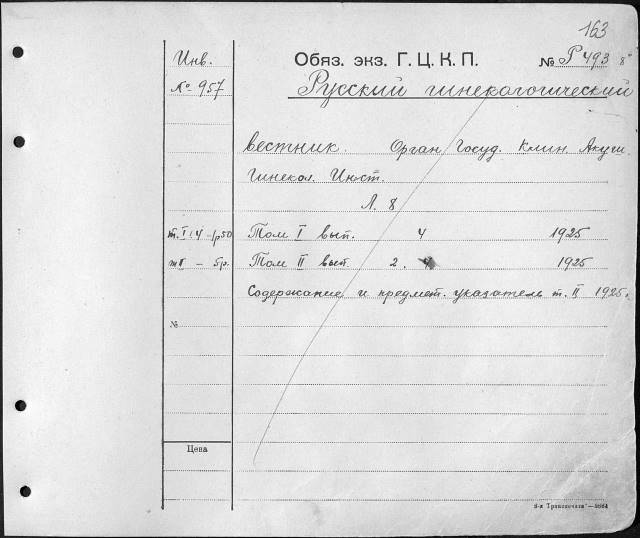 163
Инв. Обяз. экз. Г. Ц. К. П. № Р 493 8°
№ 957 Русский гинекологический
вестник. Орган Госуд. клин. Акуш.
Гинекол. Инст.
Л. 8
т. I : 4 – 1р50 Том I вып. 4 1925
т II – 5р. Том II вып. 2. 1925
Содержание и предмет. указатель т. II 1925 г.
№
Цена